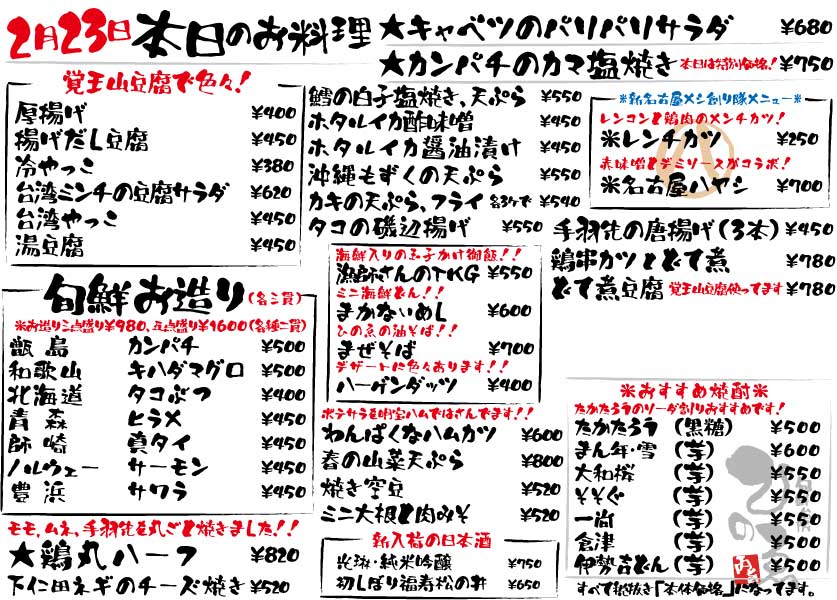 2月23日 本日のお料理
★キャベツのパリパリサラダ ¥680
★カンパチのカマ塩焼き 本日は特別価格! ¥750
覚王山豆腐で色々!
厚揚げ ¥400
揚げだし豆腐 ¥450
冷やっこ ¥380
台湾ミンチの豆腐サラダ ¥620
台湾やっこ ¥450
湯豆腐 ¥450
旬鮮お造り(各二貫)
※お造り三点盛り¥980、五点盛り¥1600(各種二貫)
甑島 カンパチ ¥500
和歌山 キハダマグロ ¥500
北海道 タコぶつ ¥400
青森 ヒラメ ¥450
師崎 真タイ ¥450
ノルウェー サーモン ¥450
豊浜 サワラ ¥450
モモ、ムネ、手羽先を丸ごと焼きました!!
★鶏丸ハーフ ¥820
下仁田ネギのチーズ焼き ¥520
鱈の白子塩焼き、天ぷら ¥550
ホタルイカ酢味噌 ¥450
ホタルイカ醤油漬け ¥450
沖縄もずくの天ぷら ¥550
カキの天ぷら、フライ 各3ケで ¥540
タコの磯辺揚げ ¥550
海鮮入りの玉子かけ御飯!!
漁師さんのTKG ¥550
ミニ海鮮どん!!
まかないめし ¥600
ひの魚の油そば!!
まぜそば ¥700
デザートに色々あります!!
ハーゲンダッツ ¥400
ポテサラを明宝ハムではさんでます!!
わんぱくなハムカツ ¥600
春の山菜天ぷら ¥800
焼き空豆 ¥520
ミニ大根と肉みそ ¥520
新入荷の日本酒
光浜・純米吟醸 ¥750
初しぼり福寿松の井 ¥650
※新名古屋メシ創り隊メニュー※
レンコンと鶏肉のメンチカツ!
※レンチカツ ¥250
赤味噌とデミソースがコラボ!
※名古屋ハヤシ ¥700
手羽先の唐揚げ(3本) ¥450
鶏串カツとどて煮 ¥780
どて煮豆腐 覚王山豆腐使ってます ¥780
※おすすめ焼酎※
たかたろうのソーダ割りおすすめです!
たかたろう (黒糖) ¥500
まん年・雪 (芋) ¥600
大和桜 (芋) ¥550
そそぐ (芋) ¥550
一尚 (芋) ¥550
倉津 (芋) ¥500
伊勢吉どん (芋) ¥500
すべて税抜き「本体価格」になってます。